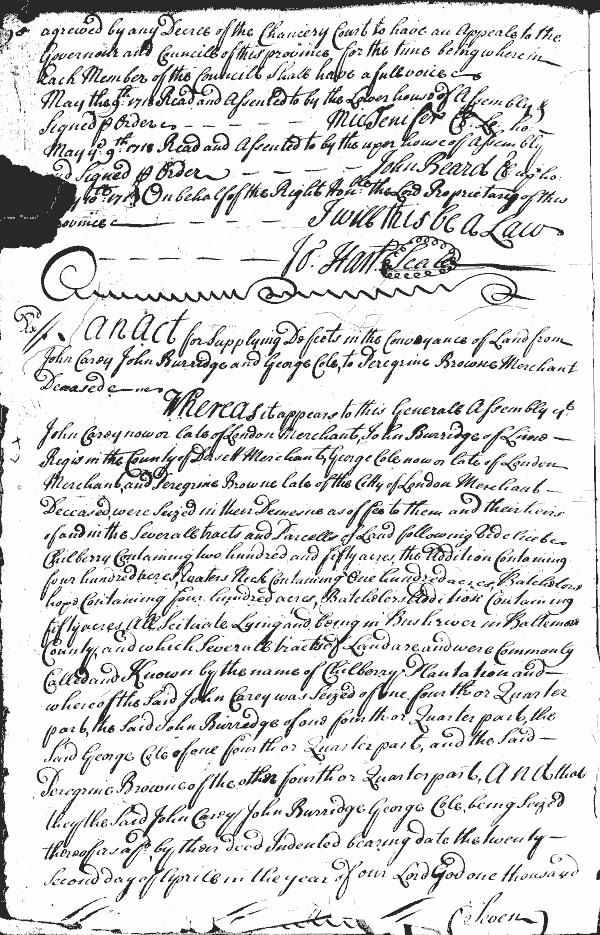 agrewed by any Decree of the Chancery Court to have an Appeale to the
Governour and Councill of this province for the time being wherein
Each Member of the Councill Shall have a full voice
May the 9th 1718 Read and Assented to by the Lower house of Assembly &
Signed p Order Jenifer ho:
May ye 9th 1718 Read and Assented to by the uper house of Assembly
and Signed p Order John Beard ho:
10th 1718 On behalf of the Right Honble the Lord Proprietary of this
province I will this be a Law
Jo: Hart Seale
An Act for Supplying Defects in the Conveyance of Land from
John Carey John Burridge and George Cole, to Peregrine Browne Merchant
Deceased
Whereas it appears to this Generall Assembly yt
John Carey now or late of London Merchant, John Burridge of Lime
Regis in the County of Dorsett Merchant, George Cole now or late of London
Merchant, and Peregrine Browne late of the City of London Merchant
Deceased, were Seized in their Demesne as of fee to them and their heirs
of and in the Severall tracts and Parcells of Land following Videlicet
Chilberry Containing two hundred and fifty acres, the Addition Containing
four hundred acres, Quaters Neck Containing One hundred acres, Batchelors
hope Containing four hundred acres, Batchelors Addition Containing
fifty acres, All Scituate Lying and being in Bush river in Baltemore
County, and which Severall tracts of Land are and were Commonly
Called and Known by the name of Chilberry Plantation and
whereof the Said John Carey was Seized of one fourth or Quarter
part, the Said John Burridge of one fourth or Quarter part, the
Said George Cole of one fourth or Quarter part, and the Said
Peregrine Browne of the other fourth or Quarter part, And that
they the Said John Carey John Burridge George Cole, being Seized
thereof as afd. by their deed Indented bearing date the twenty
Second day of Aprile in the year of our Lord God one thousand
Seven